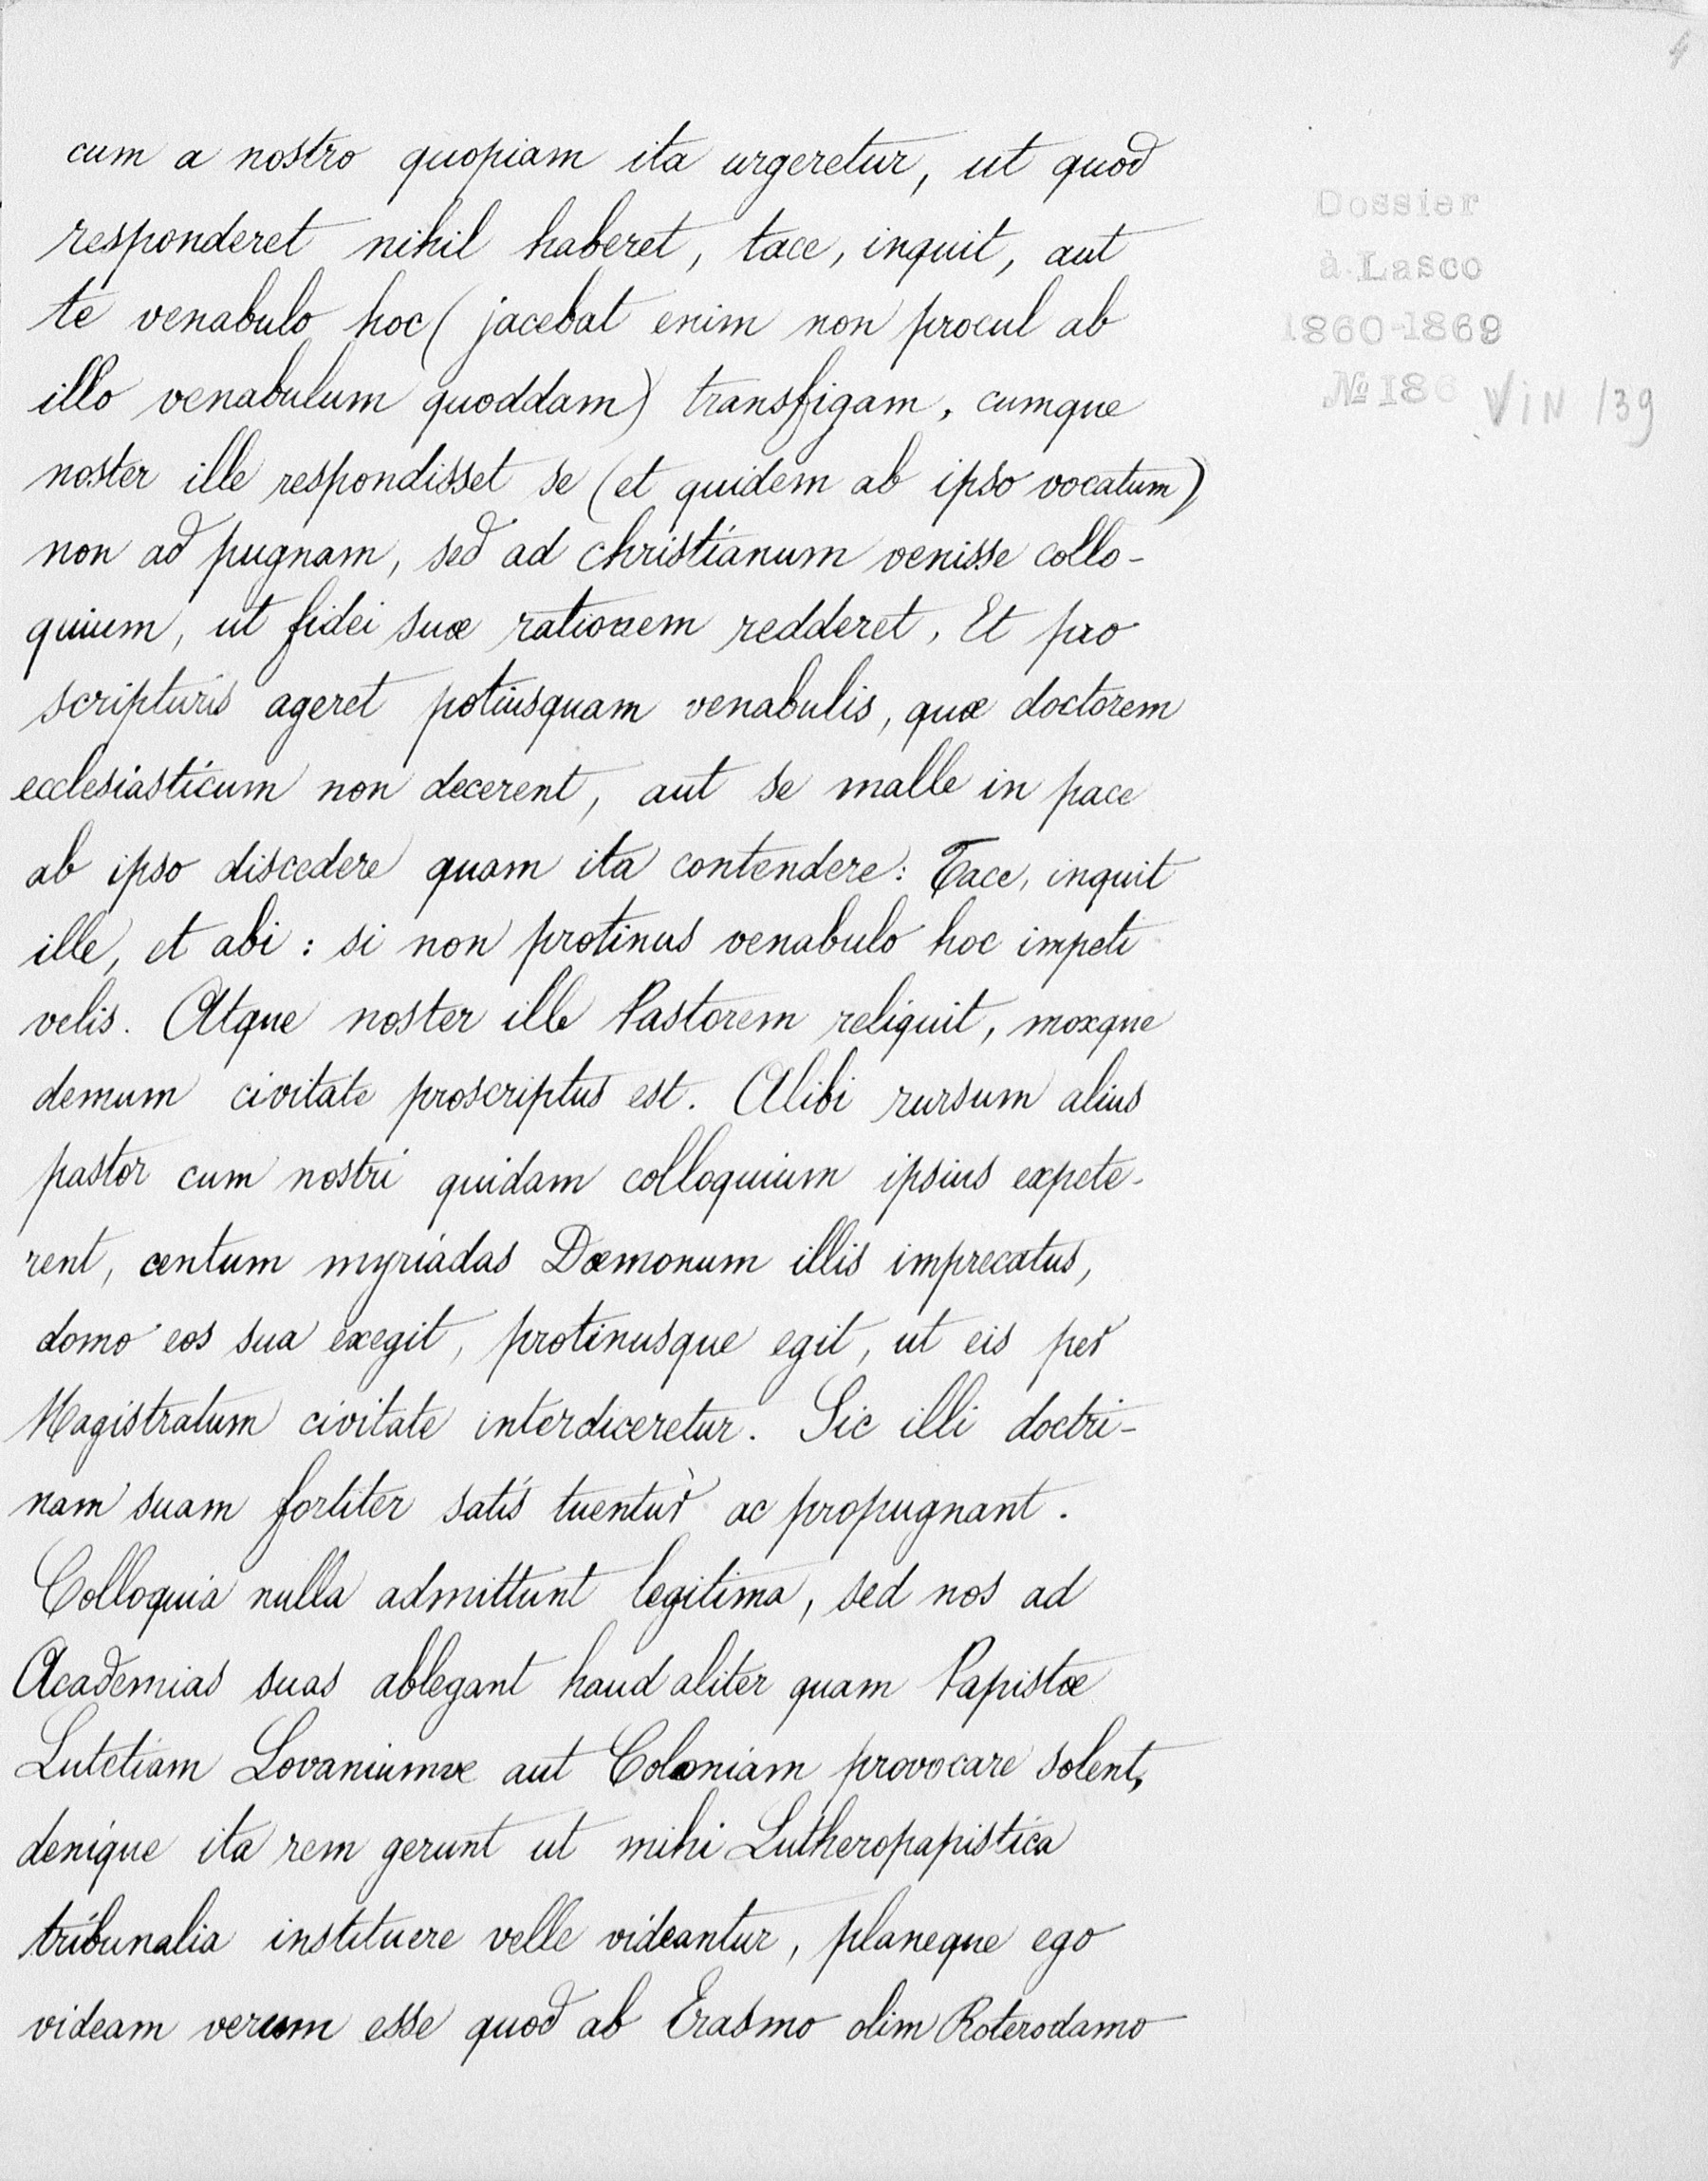 4
cum a nostro quopiam ita urgeretur, ut quod
responderet nihil haberet, tace, inquit, aut
te venabulo hoc (jacebat enim non procul ab
illo venabulum quoddam) transfigam, cumque
noster ille respondisset se (et quidem ab ipso vocatum)
non ad pugnam, sed ad christianum venisse collo-
quium, ut fidei suæ rationem redderet, Et pro
scripturis ageret potiusquam venabulis, quæ doctorem
ecclesiasticum non decerent, aut se malle in pace
ab ipso discedere quam ita contendere: Tace, inquit
ille, et abi: si non protinus venabulo hoc impeti
velis. Atque noster ille Pastorem reliquit, moxque
demum civitate proscriptus est. Alibi rursum alius
pastor cum nostri quidam colloquium ipsius expete-
rent, centum myriadas Dæmonum illis imprecatus,
domo eos sua exegit, protinusque egit, ut eis per
Magistratum civitate interdiceretur. Sic illi doctri-
nam suam fortiter satis tuentur ac propugnant.
Colloquia nulla admittunt legitima, sed nos ad
Academias suas ablegant haud aliter quam Papistæ
Lutetiam Lovaniumve aut Coloniam provocare solent,
denique ita rem gerunt ut mihi Lutheropapistica
tribunalia instituere velle videantur, planeque ego
videam verum esse quod ab Erasmo olim Roterodamo
Dossier
à Lasco
1860-1869
№ 186 VIN 139